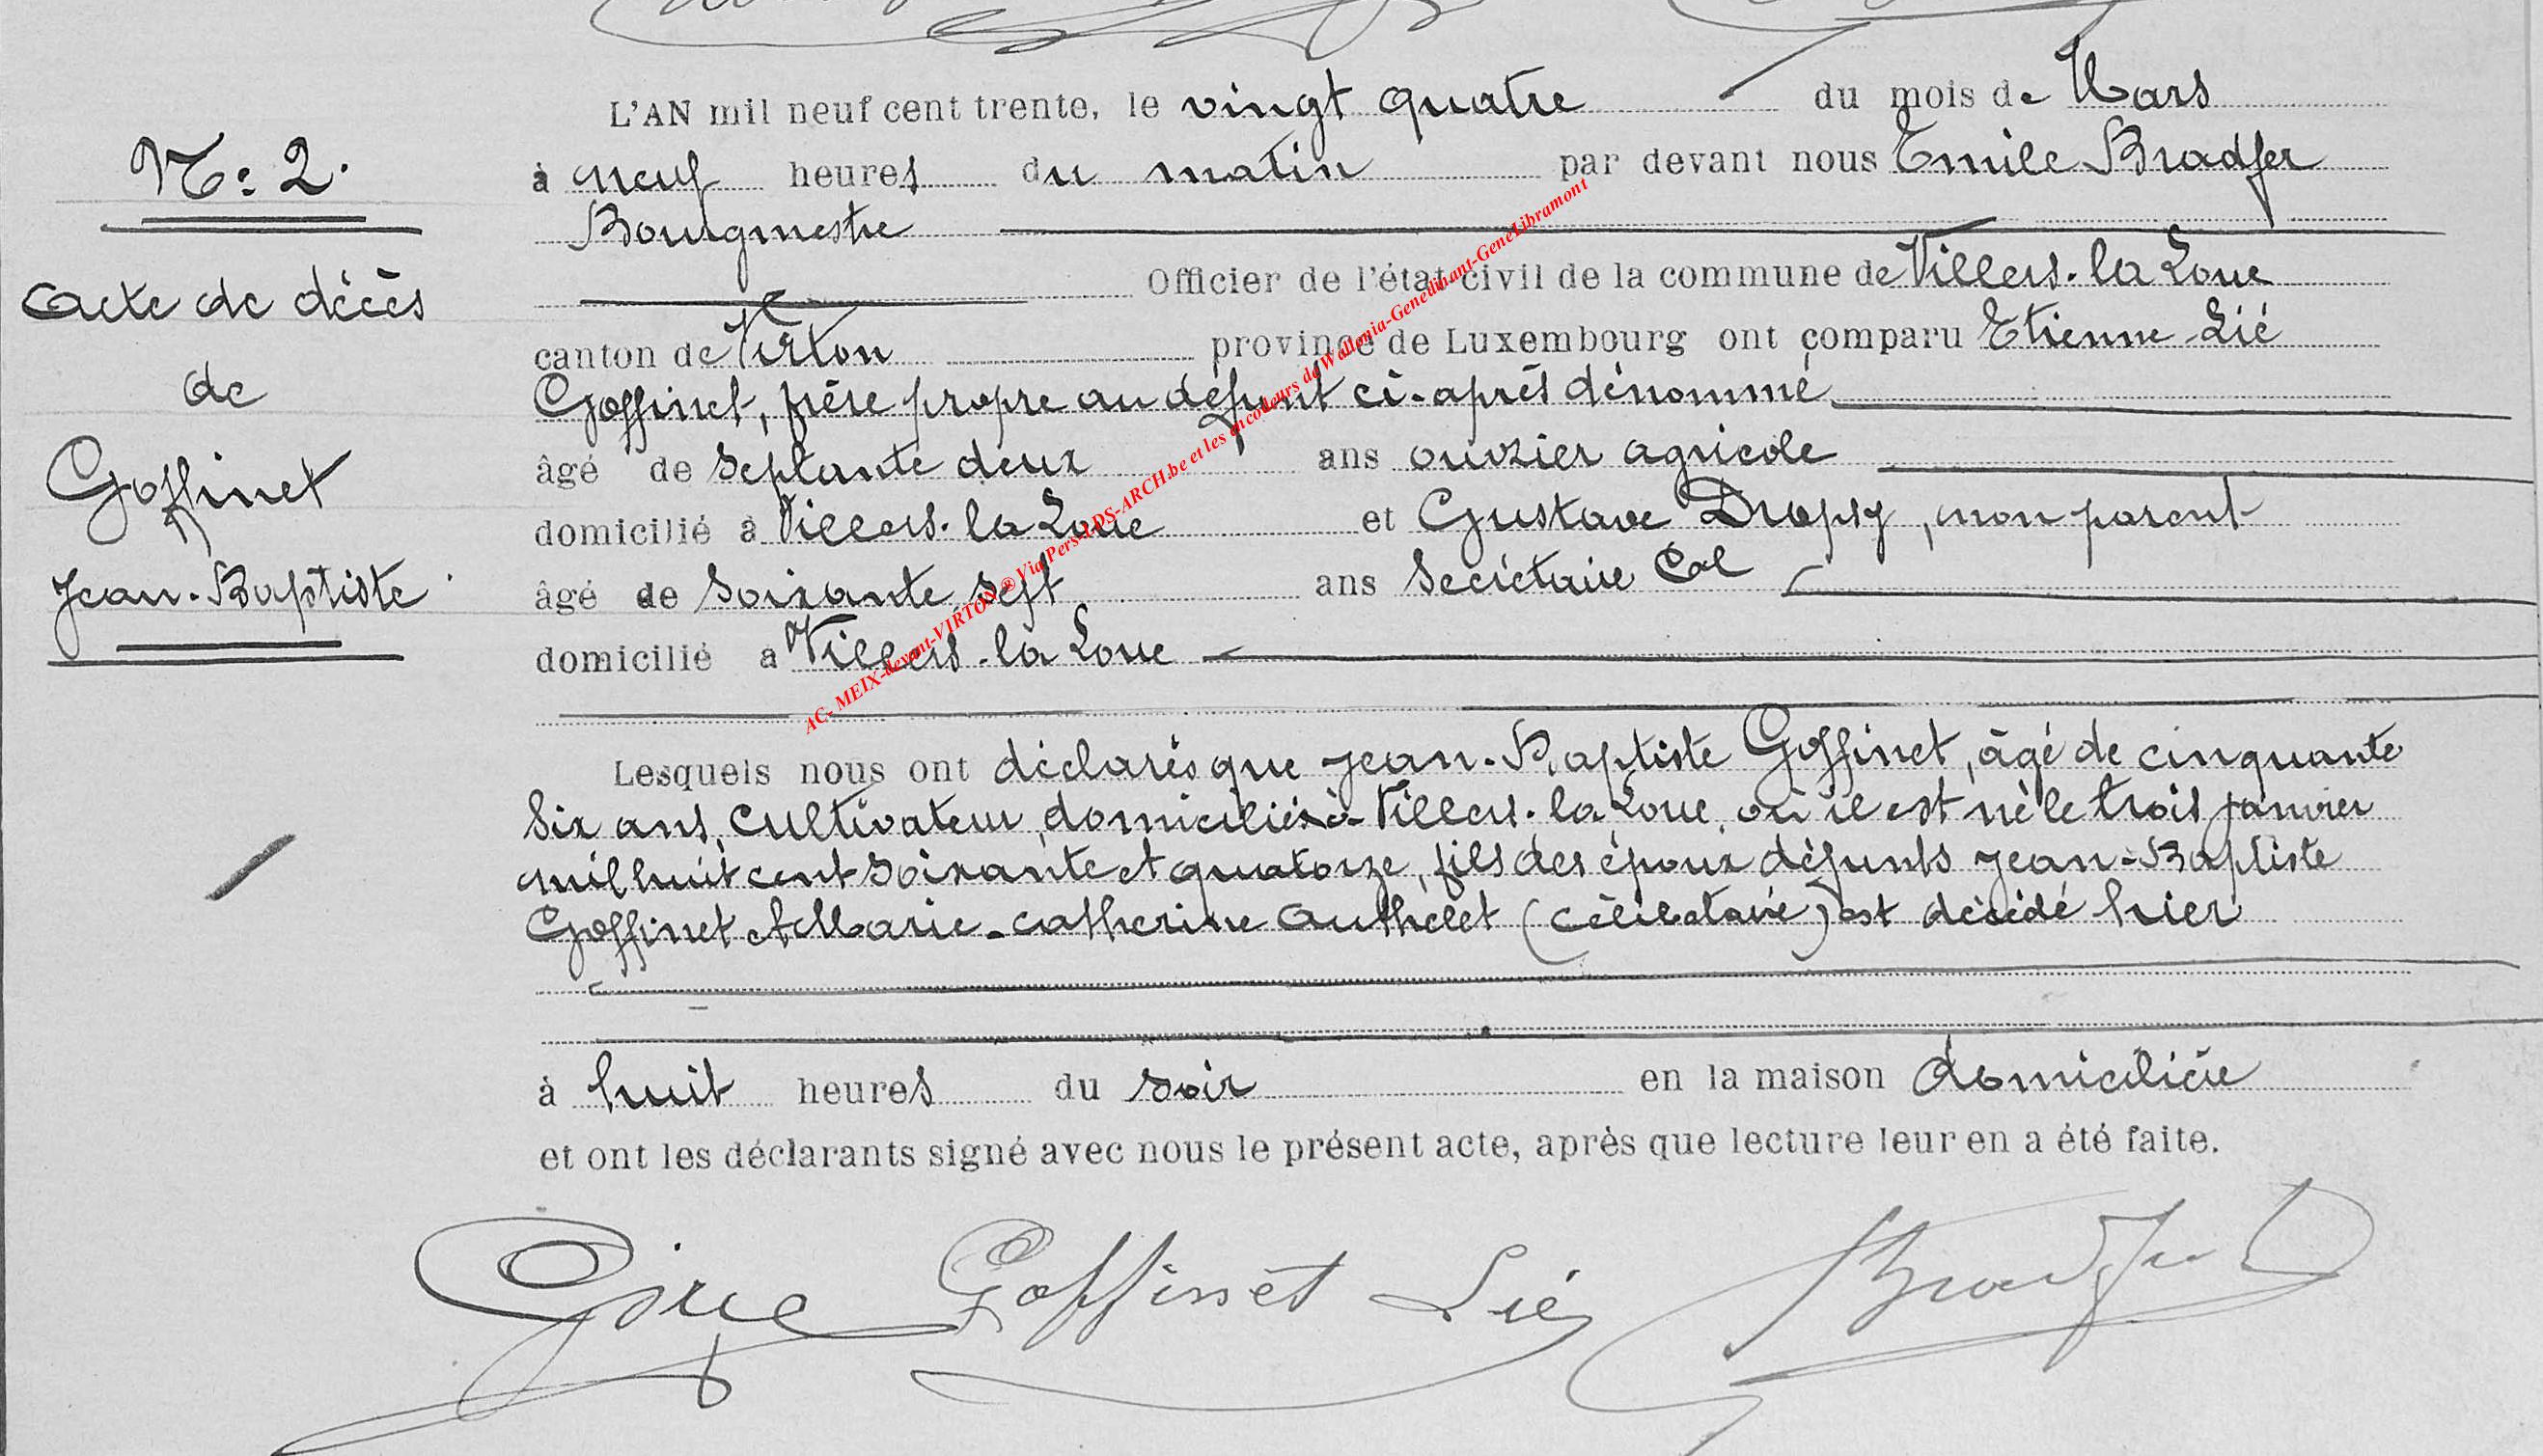 L'AN mil neuf cent trente, le vingt quatre du mois de Mars
N°: 2.
à neuf heures du matin par devant nous Emile Bradfer
Bourgmestre
Officier de l'état civil de la commune de Villers-la Loue
Acte de décès
canton de Virton province de Luxembourg ont comparu Etienne Lié
de
Goffinet, frère propre au défunt ci-après dénommé
âgé de septante deux ans ouvrier agricole
Goffinet
domicilié à Villers-la Loue et Gustave Dropsy, non parent
Jean-Baptiste
âgé de soixante sept ans secrétaire Cal
domicilié à Villers-la Loue
AC- MEIX-devant-VIRTON® Via Pers-LDS-ARCH.be et les encodeurs de Wallonia-Genedinant-GeneLibramont
Lesquels nous ont déclarés que Jean-Baptiste Goffinet, âgé de cinquante
six ans, cultivateur, domicilié à Villers-la-Loue, où il est né le trois janvier
mil huit cent soixante et quatorze, fils des époux défunts Jean-Baptiste
Goffinet et Marie-Catherine Authelet (célibataire) est décédé hier
à huit heures du soir en la maison domicilière
et ont les déclarants signé avec nous le présent acte, après que lecture leur en a été faite.
Goffinet Lié Bradfer